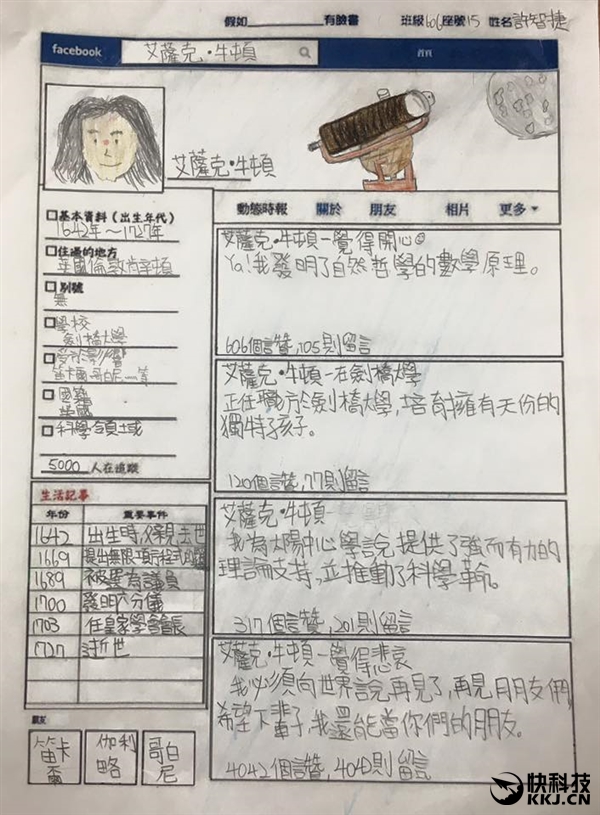 假如 有臉書 班級606座號15 姓名許智捷
facebook 艾薩克•牛頓 首頁
艾薩克•牛頓
動態時報 關於 朋友 相片 更多
基本資料（出生年代）
1642年～1727年
住過的地方
英國倫敦肯辛頓
別號
無
學校
劍橋大學
受於影響
笛卡爾哥白尼...等
國籍
英國
科學領域
5000 人在追蹤
艾薩克•牛頓-覺得開心
Ya!我發明了自然哲學的數學原理。
606個讚,105則留言
艾薩克•牛頓-在劍橋大學
正任職于於劍橋大學,培育擁有天份的
獨特孩子。
120個讚,77則留言
艾薩克•牛頓-
我為太陽中心學說提供了強而有力的
理論支持,並推動了科學革命。
317個讚,201則留言
艾薩克•牛頓-覺得悲哀
我必須向世界說再見了,再見朋友們
希望下輩子,我還能當你們的朋友。
4042個讚,404則留言
生活記事
年份 重要事件
1642 出生時,父親去世
1669 提出無限項方程式
1689 被選為議員
1700 發明六分儀
1703 任皇家學會會長
1727 逝世
朋友
笛卡爾
伽利略
哥白尼
快科技
KKJ.CN